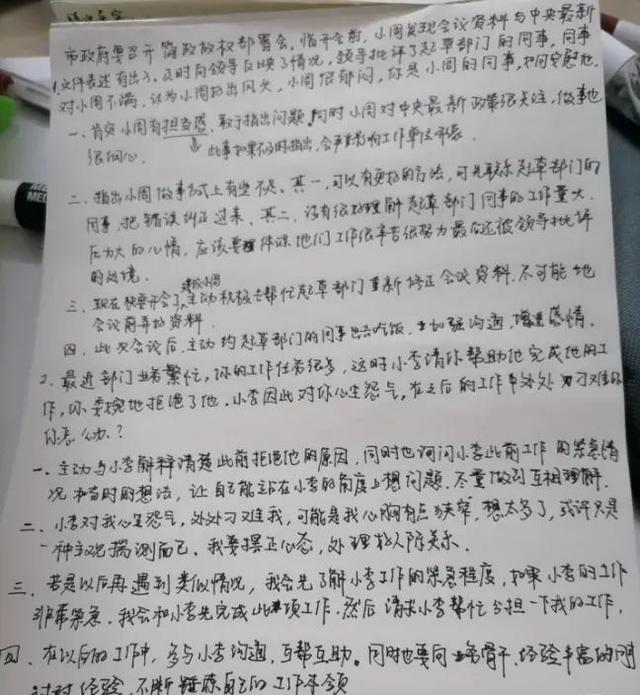 市政府要召开简政放权部署会，临开会前，小周发现会议资料与中央最新
文件表述有出入，及时向领导反映了情况，领导批评了起草部门的同事，同事
对小周不满，认为小周抢出风头，小周很郁闷，你是小周的同事，如何安慰他。
一、肯定小周有担当感，敢于指出问题，同时小周对中央最新政策很关注，做事也
很细心。
此事如果不及时指出，会严重影响工作单位开展。
二、指出小周做事方式上有些不足。其一，可以有更好的方法，可先联系起草部门的
同事，把错误纠正过来。其二，没有很好理解起草部门同事的工作量大、
压力大的心情，应该要体谅他们工作很辛苦很努力最后还被领导批评
的处境。
建议小周
三、现在快要开会了，主动积极去帮忙起草部门重新修正会议资料，尽可能地
会议前弄好资料。
四、此次会议后，主动约起草部门的同事出去吃饭，加强沟通，增进感情。
2. 最近部门业务繁忙，你的工作任务很多，这时小李请你帮助他完成他的工
作，你委婉地拒绝了他，小李因此对你心生怨气，在之后的工作中处处刁难你
你怎么办？
一、主动与小李解释清楚此前拒绝他的原因，同时也询问小李此前工作的紧急情
况和当时的想法，让自己能站在小李的角度上想问题，尽量做到互相理解。
二、小李对我心生怨气，处处刁难我，可能是我心胸有点狭窄，想太多了，或许只是
一种主观揣测而已，我要摆正心态，处理好人际关系。
三、若是以后再遇到类似情况，我会先了解小李工作的紧急程度，如果小李的工作
非常紧急，我会和小李先完成此项工作，然后请求小李帮忙分担一下我的工作。
四、在以后的工作中，多与小李沟通，互帮互助。同时也要向业务骨干、经验丰富的同
经验，不断锤炼自己的工作本领